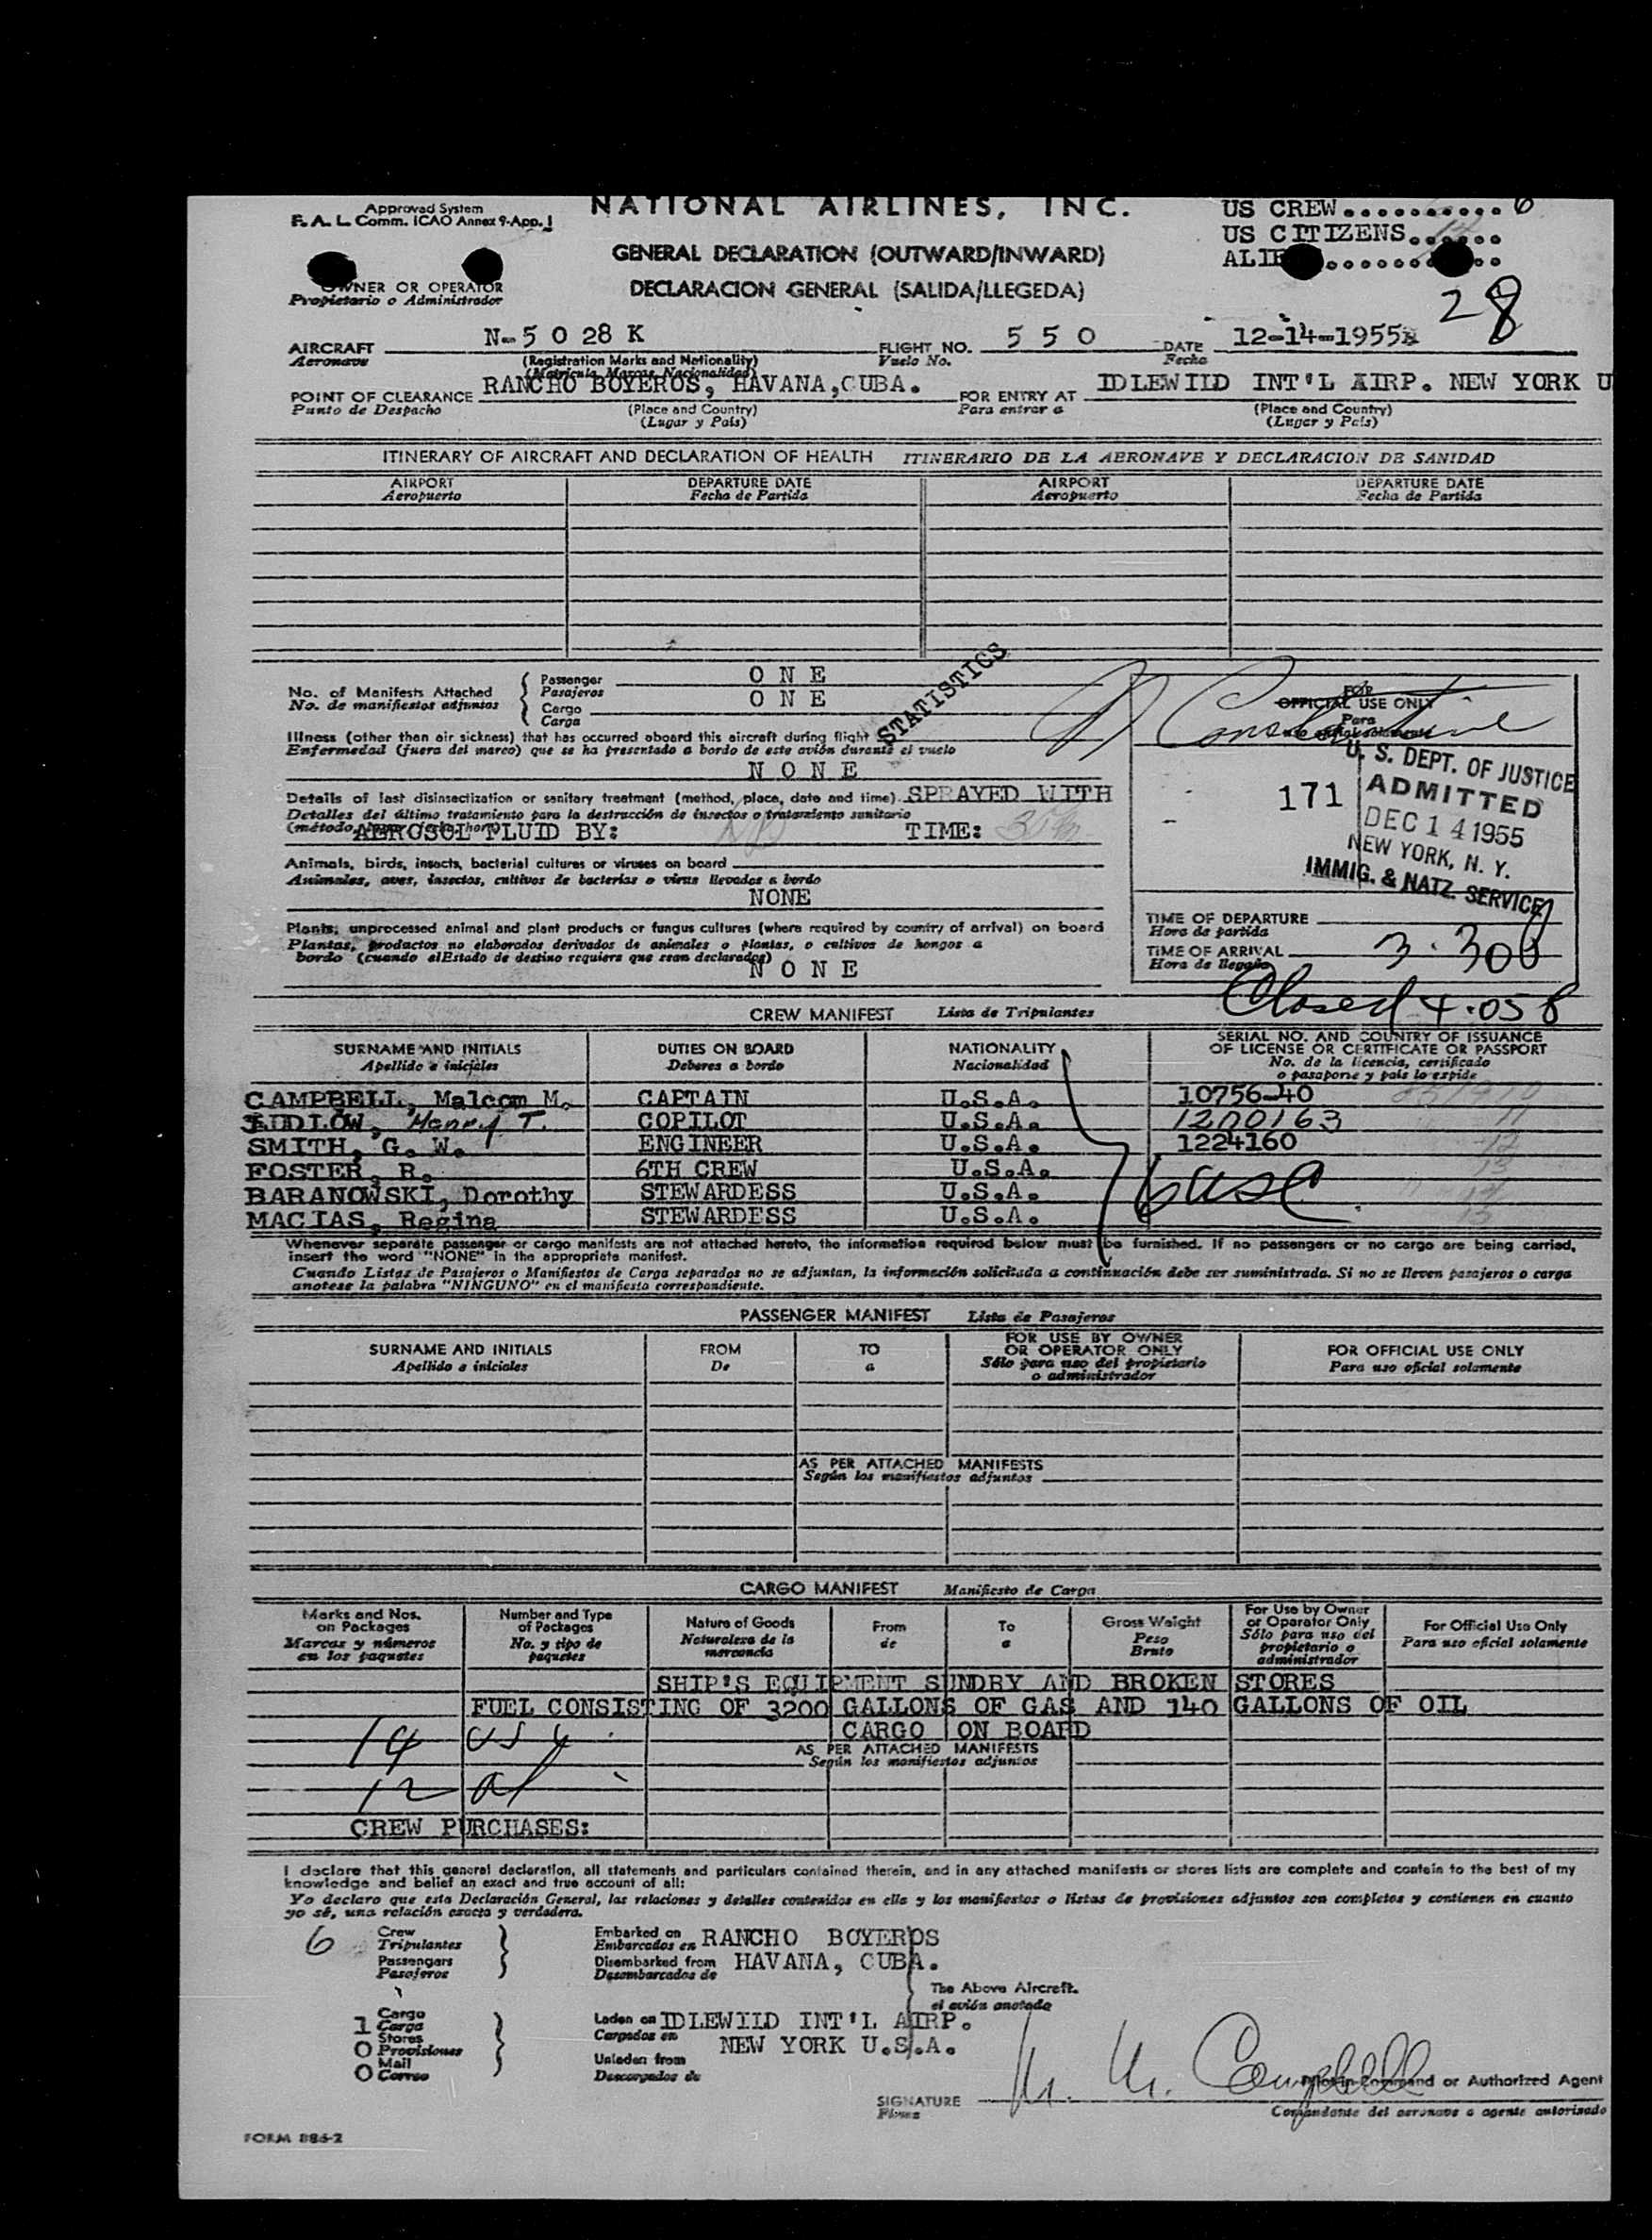 Approved System
F. A. L. Comm. ICAO Annex 9-App. 1
NATIONAL AIRLINES, INC.
US CREW........... 6
US CITIZENS.......
GENERAL DECLARATION (OUTWARD/INWARD)
DECLARACION GENERAL (SALIDA/LLEGEDA)
OWNER OR OPERATOR
Propietario o Administrador
28
AIRCRAFT N-5 0 28 K FLIGHT NO. 5 5 0 DATE 12-14-1955
Aeronave (Registration Marks and Nationality) Vuelo No. Fecha
(Matricula, Marcas, Nacionalidad)
POINT OF CLEARANCE RANCHO BOYEROS, HAVANA,CUBA. FOR ENTRY AT IDLEWIID INT'L AIRP. NEW YORK U
Punto de Despacho (Place and Country) Para entrar a (Place and Country)
(Lugar y País) (Lugar y País)
ITINERARY OF AIRCRAFT AND DECLARATION OF HEALTH ITINERARIO DE LA AERONAVE Y DECLARACION DE SANIDAD
AIRPORT DEPARTURE DATE AIRPORT DEPARTURE DATE
Aeropuerto Fecha de Partida Aeropuerto Fecha de Partida
No. of Manifests Attached
No. de manifiestos adjuntos
Passenger O N E
Pasajeros
Cargo O N E
Carga
STATISTICS
Illness (other than air sickness) that has occurred aboard this aircraft during flight
Enfermedad (fuera del mareo) que se ha presentado a bordo de este avión durante el vuelo
N O N E
Details of last disinsectization or sanitary treatment (method, place, date and time) SPRAYED WITH
Detalles del último tratamiento para la destrucción de insectos o tratamiento sanitario
AEROSOL FLUID BY: TIME:
Animals, birds, insects, bacterial cultures or viruses on board
Animales, aves, insectos, cultivos de bacterias o virus llevados a bordo
NONE
Plants, unprocessed animal and plant products or fungus cultures (where required by country of arrival) on board
Plantas, productos no elaborados derivados de animales o plantas, o cultivos de hongos a
bordo (cuando elEstado de destino requiera que sean declarados)
N O N E
FOR
OFFICIAL USE ONLY
Para
U. S. DEPT. OF JUSTICE
171 ADMITTED
DEC 14 1955
NEW YORK, N. Y.
IMMIG. & NATZ. SERVICE
TIME OF DEPARTURE
Hora de partida
TIME OF ARRIVAL 3.30
Hora de llegada
Closed 4.05
CREW MANIFEST Lista de Tripulantes
SURNAME AND INITIALS DUTIES ON BOARD NATIONALITY SERIAL NO. AND COUNTRY OF ISSUANCE
OF LICENSE OR CERTIFICATE OR PASSPORT
Apellido e iniciales Deberes a bordo Nacionalidad No. de la licencia, certificado
o pasaporte y país lo expide
CAMPBELL, Malcom M. CAPTAIN U.S.A. 10756-40
LUDLOW, Henry T. COPILOT U.S.A. 1200163
SMITH, G. W. ENGINEER U.S.A. 1224160
FOSTER, R. 6TH CREW U.S.A.
BARANOWSKI, Dorothy STEWARDESS U.S.A.
MACIAS, Regina STEWARDESS U.S.A.
6 usc
Whenever separate passenger or cargo manifests are not attached hereto, the information required below must be furnished. If no passengers or no cargo are being carried,
insert the word "NONE" in the appropriate manifest.
Cuando Listas de Pasajeros o Manifiestos de Carga separados no se adjuntan, la información solicitada a continuación debe ser suministrada. Si no se lleven pasajeros o carga
anotese la palabra "NINGUNO" en el manifiesto correspondiente.
PASSENGER MANIFEST Lista de Pasajeros
SURNAME AND INITIALS FROM TO FOR USE BY OWNER
OR OPERATOR ONLY FOR OFFICIAL USE ONLY
Apellido e iniciales De a Sólo para uso del propietario
o administrador Para uso oficial solamente
AS PER ATTACHED MANIFESTS
Según los manifiestos adjuntos
CARGO MANIFEST Manifiesto de Carga
Marks and Nos.
on Packages
Marcas y números
en los paquetes
Number and Type
of Packages
No. y tipo de
paquetes
Nature of Goods
Naturaleza de la
mercancía
From
de
To
a
Gross Weight
Peso
Bruto
For Use by Owner
or Operator Only
Sólo para uso del
propietario o
administrador
For Official Use Only
Para uso oficial solamente
SHIP'S EQUIPMENT SUNDRY AND BROKEN STORES
FUEL CONSISTING OF 3200 GALLONS OF GAS AND 140 GALLONS OF OIL
CARGO ON BOARD
AS PER ATTACHED MANIFESTS
Según los manifiestos adjuntos
14 US
12 al
CREW PURCHASES:
I declare that this general declaration, all statements and particulars contained therein, and in any attached manifests or stores lists are complete and contain to the best of my
knowledge and belief an exact and true account of all:
Yo declaro que esta Declaración General, las relaciones y detalles contenidos en ella y los manifiestos o listas de provisiones adjuntos son completos y contienen en cuanto
yo sé, una relación exacta y verdadera.
6 Crew
Tripulantes
Passengers
Pasajeros
Embarked on RANCHO BOYEROS
Embarcados en
Disembarked from HAVANA, CUBA.
Desembarcados de
The Above Aircraft.
el avión anotado
1 Cargo
Carga
Stores
0 Provisiones
Mail
0 Correo
Laden on IDLEWIID INT'L AIRP.
Cargados en
NEW YORK U.S.A.
Unladen from
Descargados de
SIGNATURE M. M. Campbell
Firma
Pilot-in-Command or Authorized Agent
Comandante del aeronave o agente autorizado
FORM 886-2